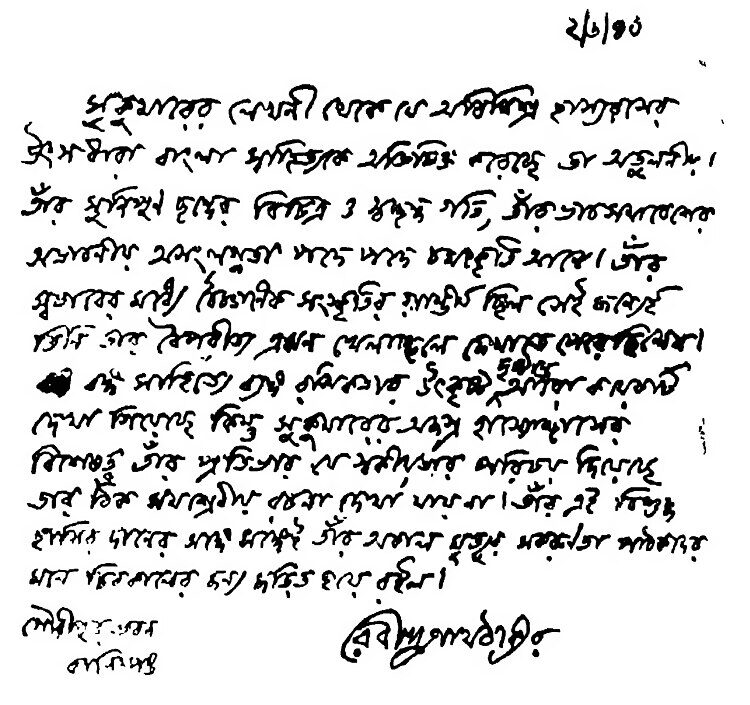 ২/৬/৪০
সুকুমারের লেখনী থেকে যে অবিমিশ্র হাস্যরসের
উৎসধারা বাংলা সাহিত্যকে অভিষিক্ত করেছে তা অতুলনীয়।
তাঁর সুনিপুণ ছন্দের বিচিত্র ও স্বচ্ছন্দ গতি, তাঁর ভাব সমাবেশের
অভাবনীয় অসংলগ্নতা পদে পদে চমৎকৃতি আনে। তাঁর
স্বভাবের মধ্যে বৈজ্ঞানিক সংস্কৃতির গাম্ভীর্য ছিল সেই জন্যেই
তিনি তার বৈপরীত্য এমন খেলাচ্ছলে দেখাতে পেরেছিলেন।
বঙ্গ সাহিত্যে ব্যঙ্গ রসিকতার উৎকৃষ্ট দৃষ্টান্ত আরো কয়েকটি
দেখা গিয়েছে কিন্তু সুকুমারের অজস্র হাস্যোচ্ছ্বাসের
বিশেষত্ব তাঁর প্রতিভার যে স্বকীয়তার পরিচয় দিয়েছে
তার ঠিক সমশ্রেণীয় রচনা দেখা যায় না। তাঁর এই বিশুদ্ধ
হাসির দানের সঙ্গে সঙ্গেই তাঁর অকাল মৃত্যুর সকরুণতা পাঠকদের
মনে চিরকালের জন্য জড়িত হয়ে রইল।
গৌরীপুর ভবন
কালিম্পঙ
রবীন্দ্রনাথ ঠাকুর